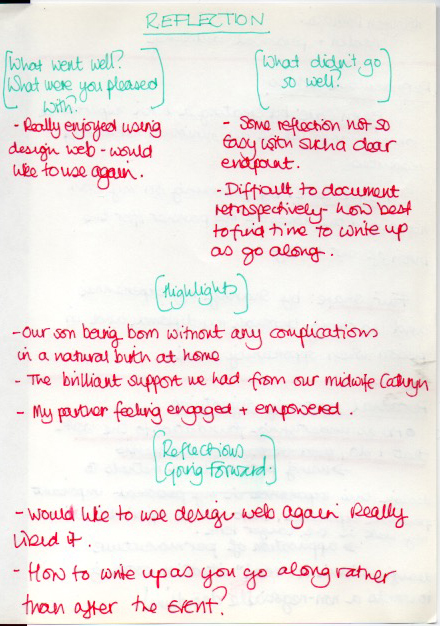 REFLECTION
What went well?
What were you pleased
with?
- Really enjoyed using
design web - would
like to use again.
What didn't go
so well?
- Some reflection not so
Easy with such a clear
endpoint.
- Difficult to document
retrospectively - how best
to find time to write up
as go along.
Highlights
- Our son being born without any complications
in a natural birth at home
- The brilliant support we had from our midwife Cathryn
- My partner feeling engaged + empowered.
Reflections
Going Forward.
- Would like to use design web again. Really
liked it.
- How to write up as you go along rather
than after the EVENT?